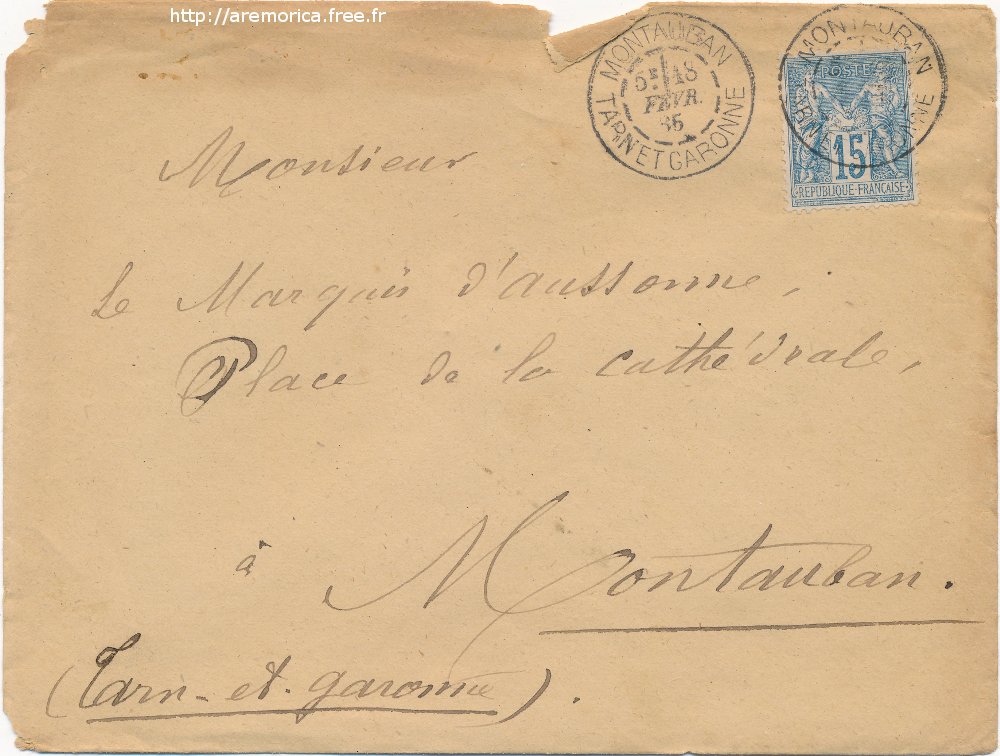 http://aremorica.free.fr
MONTAUBAN
5E 18
FEVR.
85
TARN ET GARONNE
MONTAUBAN
POSTE
15
REPUBLIQUE FRANÇAISE
Monsieur
Le Marquis d'aussonne,
Place de la cathédrale,
à Montauban.
(Tarn-et-garonne).